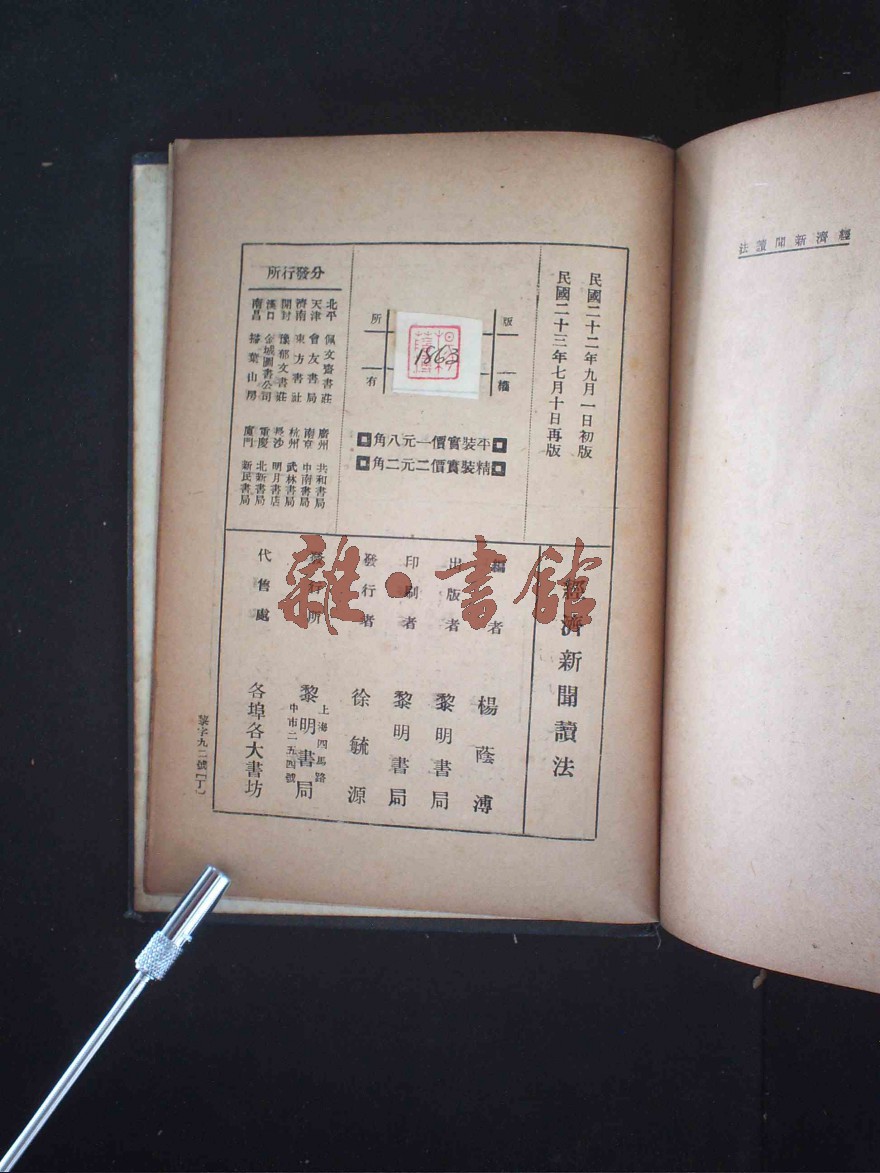 經濟新聞讀法
民國二十二年九月一日初版
民國二十三年七月十日再版
版權
所有
1863
平裝實價一元八角
精裝實價二元二角
分發行所
北平 佩文齋書莊
天津 會友書局
濟南 東方書社
開封 豫郁文書莊
漢口 金城圖書公司
南昌 掃葉山房
廣州 共和書局
南京 中南書局
杭州 武林書局
長沙 明月書店
重慶 北新書局
廈門 新民書局
經濟新聞讀法
編者 楊蔭溥
出版者 黎明書局
印刷者 黎明書局
發行者 徐毓源
發行所 黎明書局
上海四馬路
中市二五四號
代售處 各埠各大書坊
黎字九二號[丁]
雜·書館